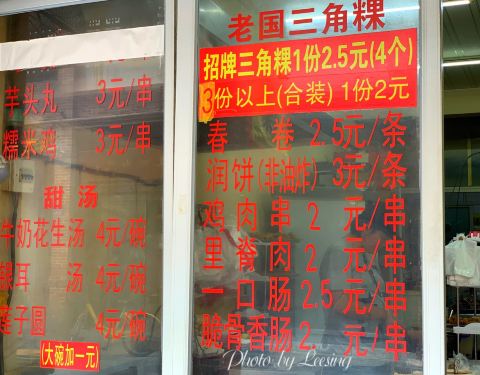 芋头丸 3元/串
糯米鸡 3元/串
甜汤
牛奶花生汤 4元/碗
银耳汤 4元/碗
莲子圆 4元/碗
(大碗加一元)
老国三角粿
招牌三角粿1份2.5元(4个)
3份以上(合装) 1份2元
春卷 2.5元/条
润饼(非油炸) 3元/条
鸡肉串 2元/串
里脊肉 2元/串
一口肠 2.5元/串
脆骨香肠 2. 元/串
Photo by Leesing